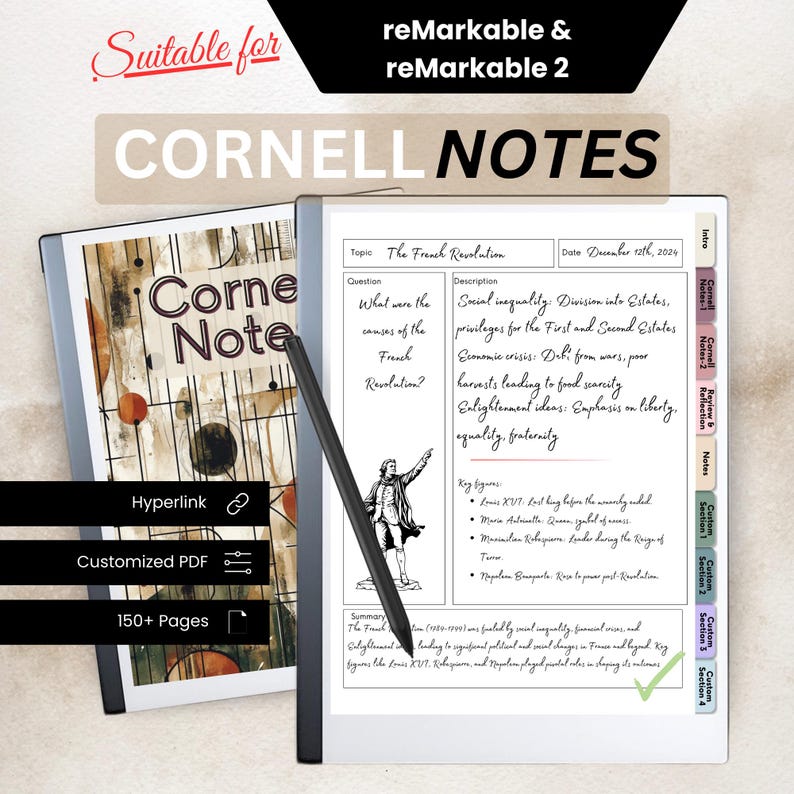 Suitable for
reMarkable &
reMarkable 2
CORNELL NOTES
Corne
Note
Hyperlink
Customized PDF
150+ Pages
Topic The French Revolution
Date December 12th, 2024
Question
What were the
causes of the
French
Revolution?
Description
Social inequality: Division into Estates,
privileges for the First and Second Estates
Economic crisis: Debt from wars, poor
harvests leading to food scarcity
Enlightenment ideas: Emphasis on liberty,
equality, fraternity
Key figures:
• Louis XVI: Last king before the monarchy ended.
• Marie Antoinette: Queen, symbol of excess.
• Maximilien Robespierre: Leader during the Reign of
Terror.
• Napoleon Bonaparte: Rose to power post-Revolution.
Summary
The French Revolution (1789-1799) was fueled by social inequality, financial crises, and
Enlightenment leading to significant political and social changes in France and beyond. Key
figures like Louis XVI, Robespierre, and Napoleon played pivotal roles in shaping its outcomes
Intro
Cornell
Notes-1
Cornell
Notes-2
Review &
Reflection
Notes
Custom
Section 1
Custom
Section 2
Custom
Section 3
Custom
Section 4